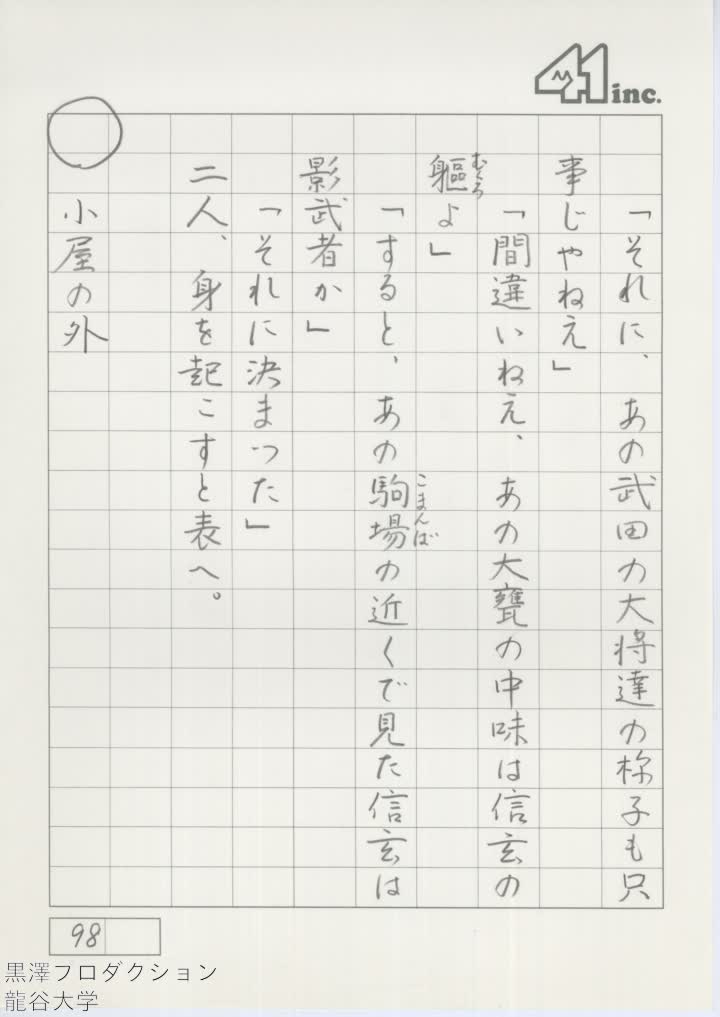 41 inc.
「それに、あの武田の大将達の様子も只
事じゃねえ」
「間違いねえ、あの大甕の中味は信玄の
軀よ」
むくろ
「すると、あの駒場の近くで見た信玄は
こまんば
影武者か」
「それに決まった」
二人、身を起こすと表へ。
小屋の外
98
黒澤フロダクション
龍谷大学